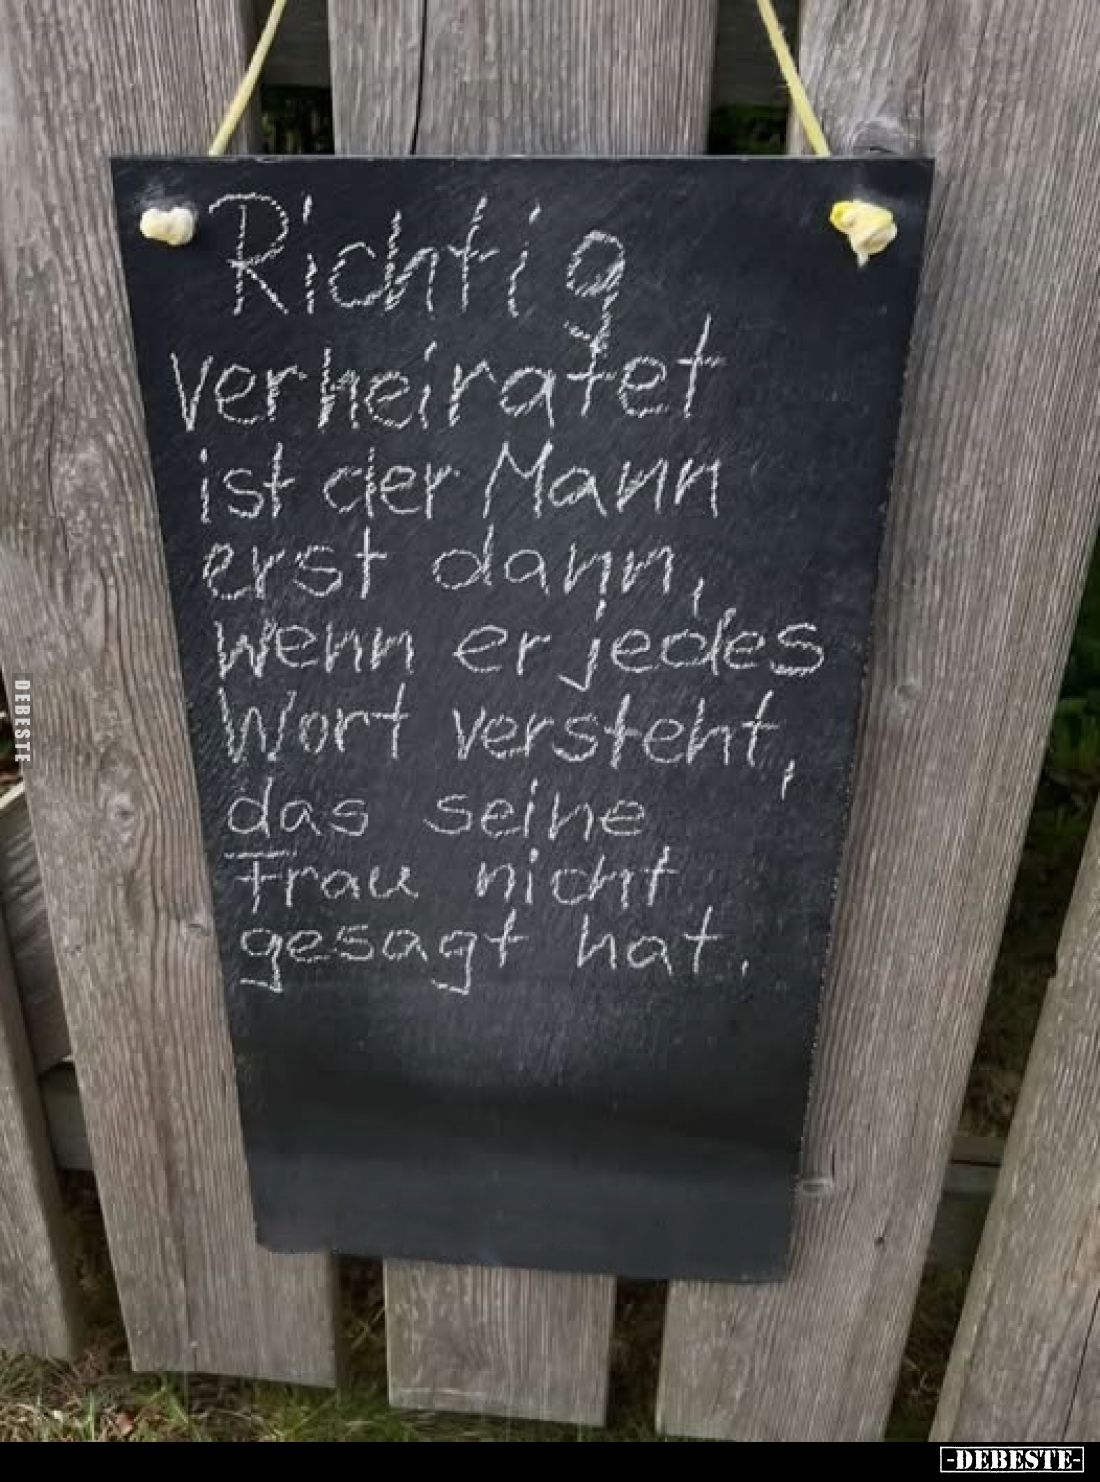 Richtig
verheiratet
ist der Mann
erst dann,
wenn er jedes
Wort versteht,
das seine
Frau nicht
gesagt hat.
DEBESTE
-DEBESTE-